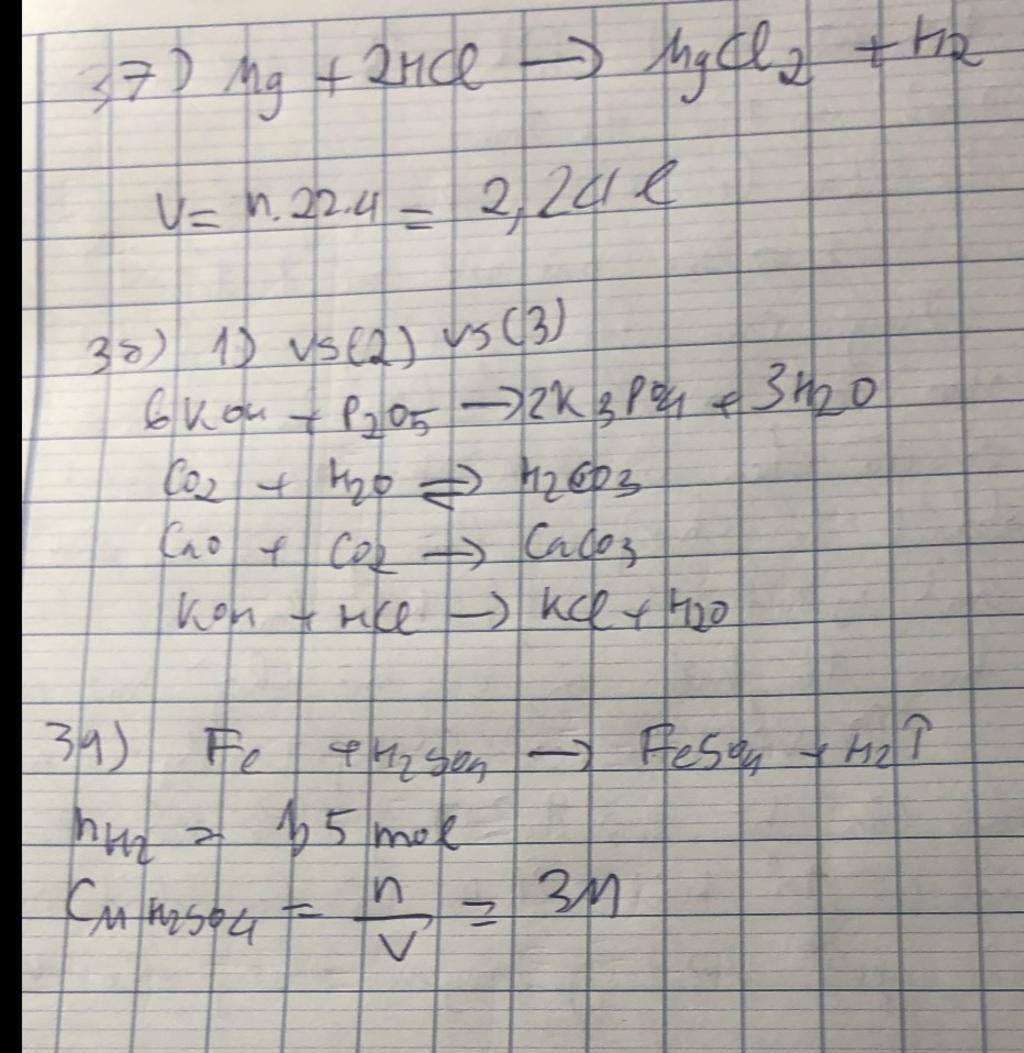 37) Mg + 2HCl → MgCl2 + H2
V = n.22.4 = 2,24 l
38) 1) vs(2) vs(3)
6KOH + P2O5 → 2K3PO4 + 3H2O
CO2 + H2O ⇌ H2CO3
CaO + CO2 → CaCO3
KOH + HCl → KCl + H2O
39) Fe + H2SO4 → FeSO4 + H2↑
nH2 = 1,5 mol
CM H2SO4 = n/V = 3M